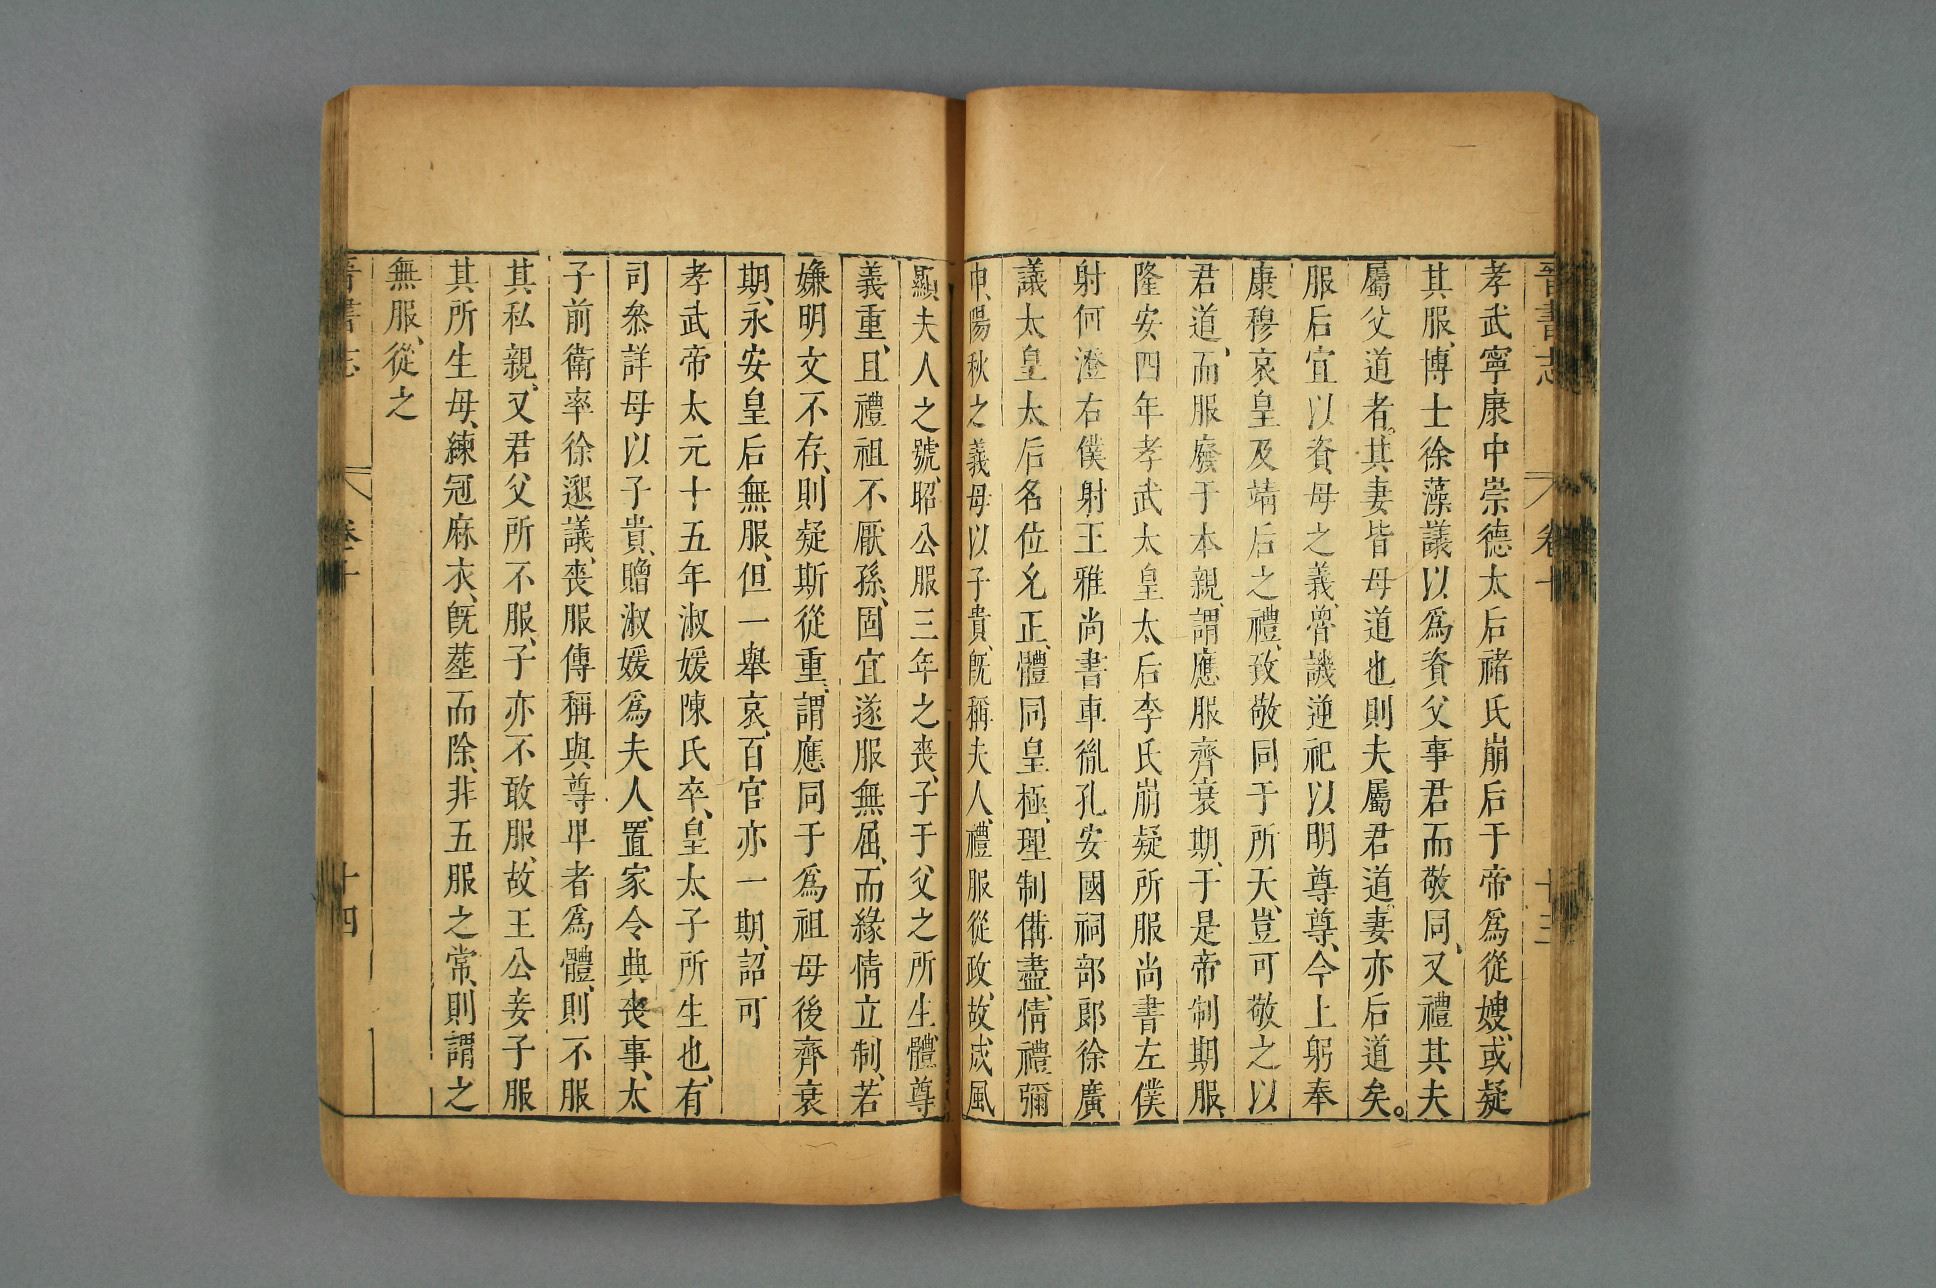 晉書志 卷十 十三
孝武寧康中崇德太后褚氏崩后于帝爲從嫂、或疑
其服、博士徐藻議以爲資父事君而敬同、又禮其夫
屬父道者。其妻皆母道也則夫屬君道。妻亦后道矣。
服后宜以資母之義、魯譏逆祀以明尊尊、今上躬奉
康穆哀皇及靖后之禮、致敬同于所天、豈可敬之以
君道、而服廢于本親、謂應服齊衰期、于是帝制期服、
隆安四年孝武太皇太后李氏崩疑所服尚書左僕
射何澄右僕射王雅尚書車胤孔安國祠部郎徐廣
議太皇太后名位允正、體同皇極、理制備盡、情禮彌
申、陽秋之義母以子貴、旣稱夫人、禮服從政、故成風
顯夫人之號、昭公服三年之喪、子于父之所生、體尊
義重、且禮祖不厭孫、固宜遂服無屈、而緣情立制、若
嫌明文不存、則疑斯從重、謂應同于爲祖母後齊衰
期、永安皇后無服、但一舉哀、百官亦一期、詔可
孝武帝太元十五年淑媛陳氏卒、皇太子所生也、有
司參詳母以子貴、贈淑媛爲夫人、置家令典喪事、太
子前衛率徐邈議、喪服傳稱與尊者爲體、則不服
其私親、又君父所不服、子亦不敢服、故王公妾子服
其所生母、練冠麻衣、旣葬而除、非五服之常、則謂之
無服、從之
晉書志 卷十 十四